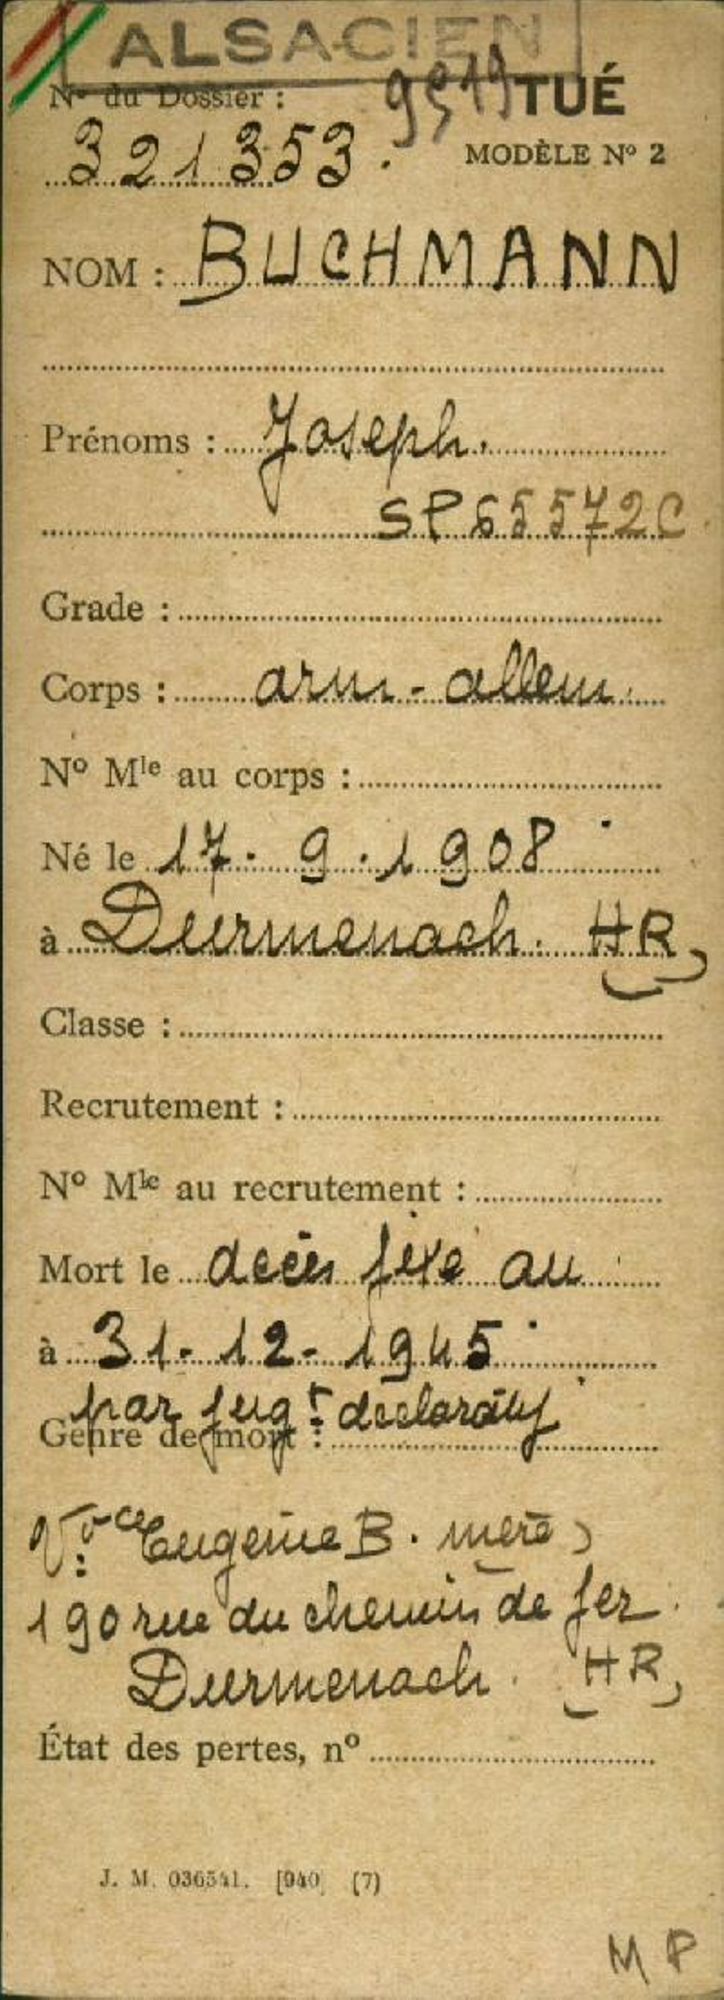 ALSACIEN
N° du Dossier : 9519 TUÉ
321353. MODÈLE N° 2
NOM : BUCHMANN
Prénoms : Joseph.
SP 65572C
Grade :
Corps : arm - allem.
N° Mle au corps :
Né le 17 - 9 - 1908
à Durmenach. HR
Classe :
Recrutement :
N° Mle au recrutement :
Mort le décès fixé au
à 31 - 12 - 1945
par jugt déclaratif
Genre de mort :
Eugenie B. mère
190 rue du chemin de fer
Durmenach. HR
État des pertes, n°
J. M. 036541. [940] (7)
M P